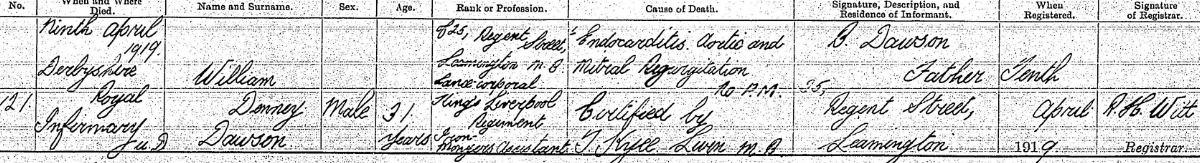 No. When and Where Died. Name and Surname. Sex. Age. Rank or Profession. Cause of Death. Signature, Description, and Residence of Informant. When Registered. Signature of Registrar.
121. Ninth April
1919
Derbyshire
Royal
Infirmary
U.D
William
Denney
Dawson
Male
31
Years
Regent
Street,
Leamington
Lance-corporal
King's Liverpool
Regiment
Iron-
mongers Assistant
Endocarditis. Aortic and
Mitral Regurgitation
No P.M.
Certified by
M.B.
B. Dawson
Father
35,
Regent Street,
Leamington
Tenth
April
1919
R. H. Witt
Registrar.